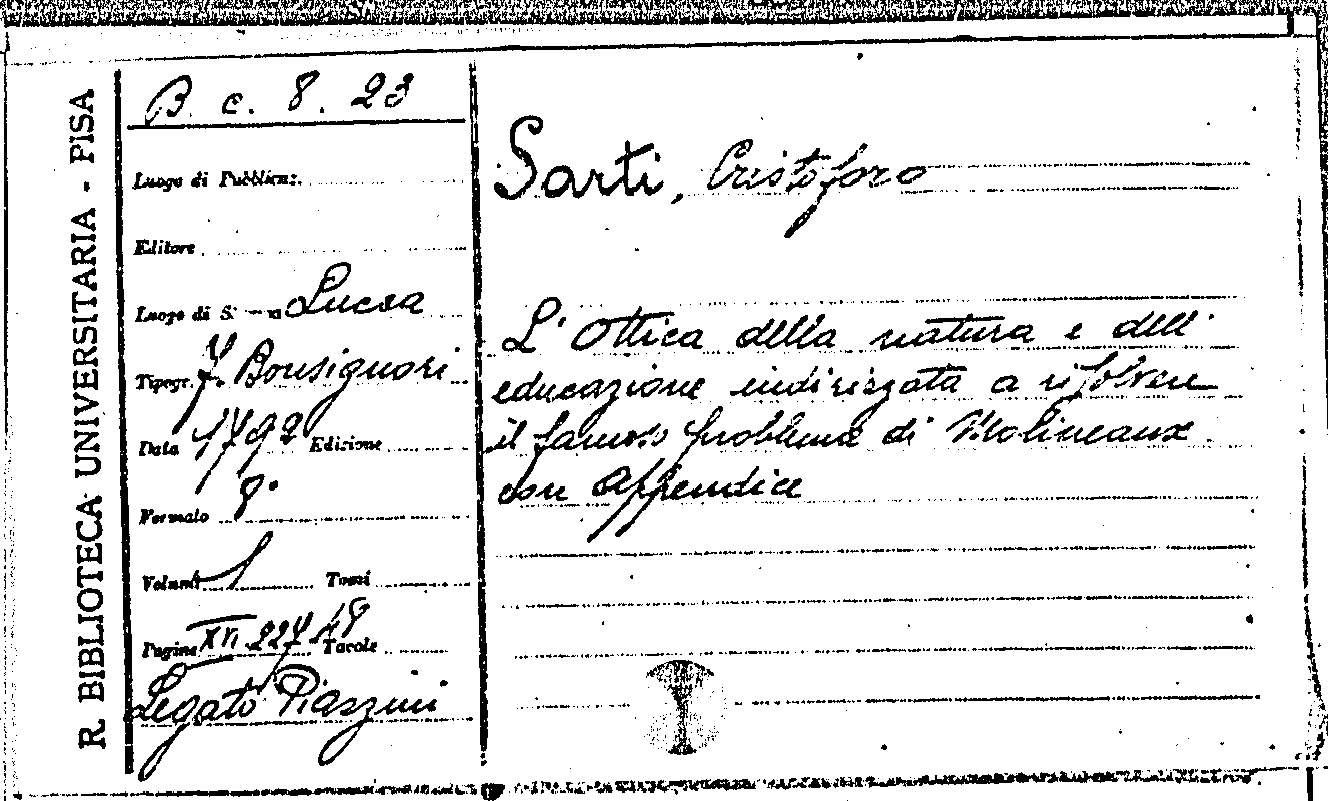 R. BIBLIOTECA UNIVERSITARIA - PISA
B. c. 8. 23
Luogo di Pubblicaz.
Editore
Luogo di S Lucca
Tipogr. F. Bonsignori
Data 1792 Edizione
Formato 8°
Volumi 1 Tomi
Pagine XVI. 227 Tavole
Legato Piazzini
Sarti, Cristoforo
L' Ottica della natura e dell'
educazione indirizzata a risolvere
il famoso problema di Molineaux
con Appendice